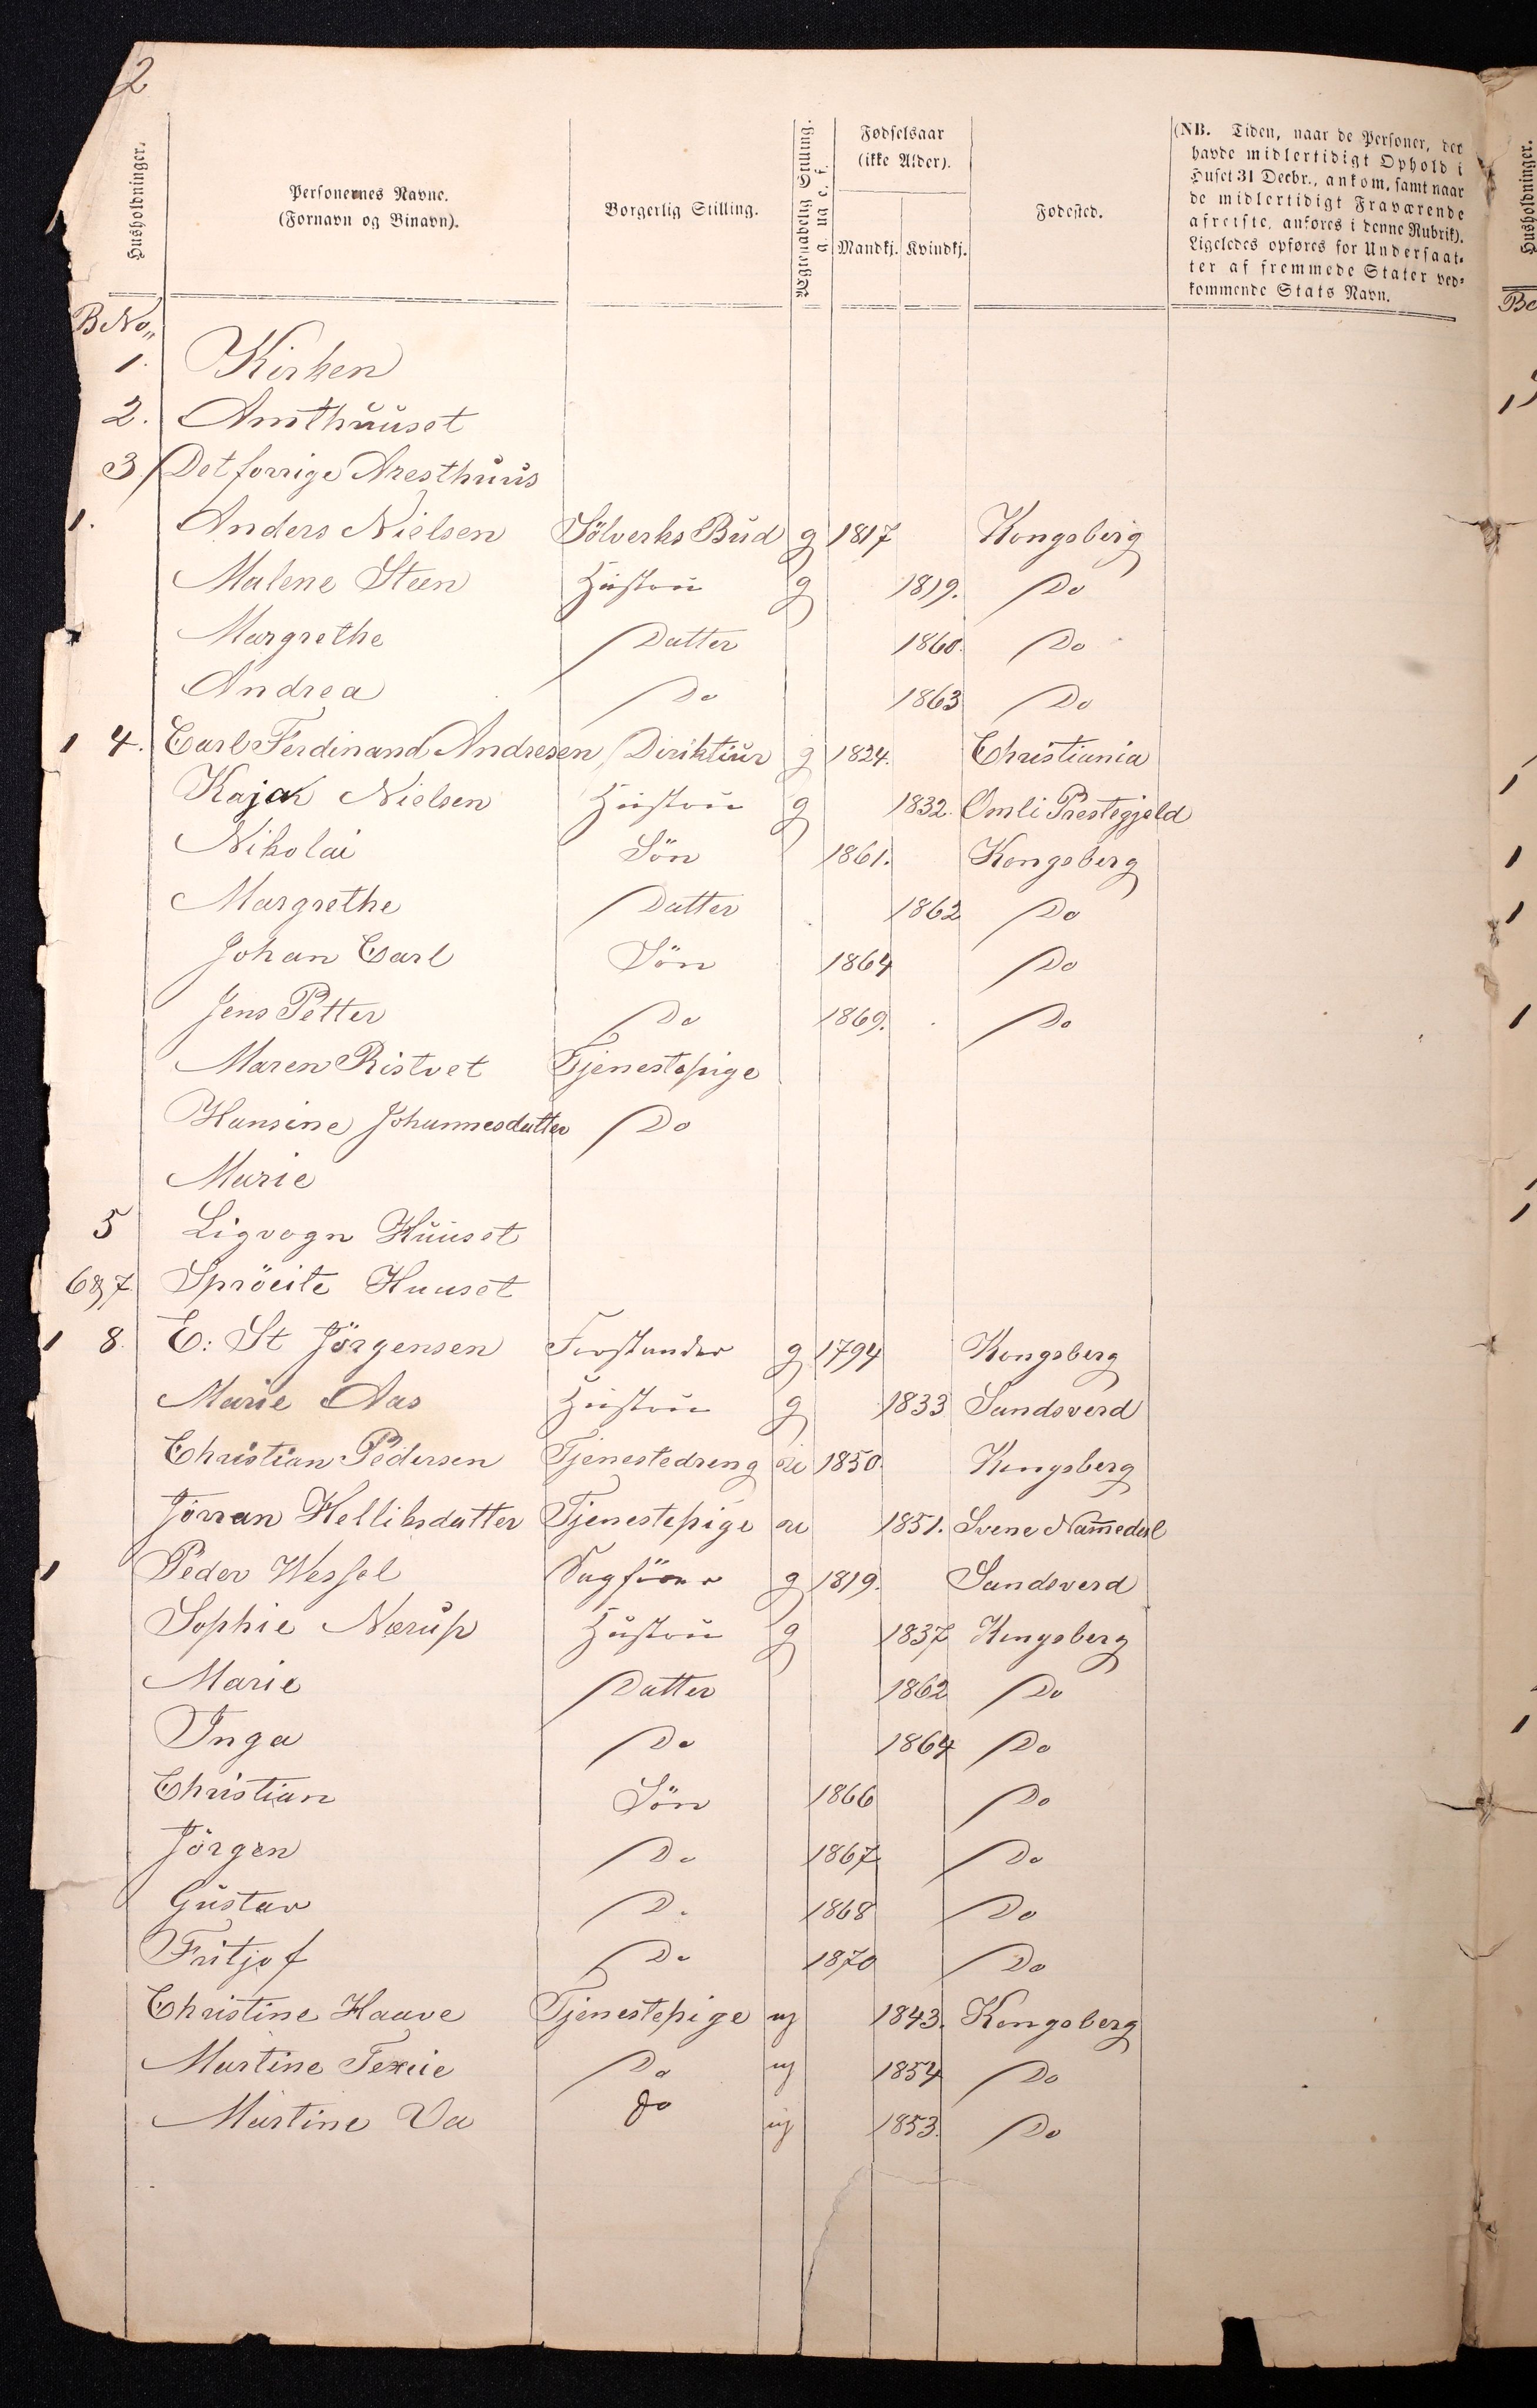 2
Husholdninger.
Personernes Navne.
(Fornavn og Binavn).
Borgerlig Stilling.
Ægteskabelig Stilling.
g. ug e. f.
Fødselsaar
(ikke Alder).
Mandkj. Kvindkj.
Fødested.
(NB. Tiden, naar de Personer, der
havde midlertidigt Ophold i
Huset 31 Decbr., ankom, samt naar
de midlertidigt Fraværende
afreiste, anføres i denne Rubrik).
Ligeledes opføres for Undersaat-
ter af fremmede Stater ved-
kommende Stats Navn.
B No
1. Kirken
2. Amthuuset
3 Det forrige Aresthuus
1. Anders Nielsen Sölverks Bud g 1817 Kongsberg
Malene Steen Hustru g 1819. Do
Margrethe Datter 1860. Do
Andrea Do 1863 Do
1 4. Carl Ferdinand Andresen Diriktiur g 1824. Christiania
Kajak Nielsen Hustru g 1832. Omli Prestegjeld
Nikolai Sön 1861. Kongsberg
Margrethe Datter 1862 Do
Johan Carl Sön 1864 Do
Jens Petter Do 1869. Do
Maren Ristvet Tjenestepige
Hansine Johannesdatter Do
Marie
5 Ligvogn Huuset
6&7 Spröeite Huuset
1 8 E: St Jörgensen Forstander g 1794 Kongsberg
Marie Aas Hustru g 1833 Sandsverd
Christian Pedersen Tjenestedreng 1850 Kongsberg
Jörran Helliksdatter Tjenestepige 1851. Svene Nammedal
1 Peder Wessel Sagförer g 1819. Sandsverd
Sophie Nærup Hustru g 1837 Kongsberg
Marie Datter 1862 Do
Inga Do 1864 Do
Christian Sön 1866 Do
Jörgen Do 1867 Do
Gustav Do 1868 Do
Fritjof Do 1870 Do
Christine Haave Tjenestepige ug 1843. Kongsberg
Martine Do ug 1854 Do
Martine Va do ug 1853. Do